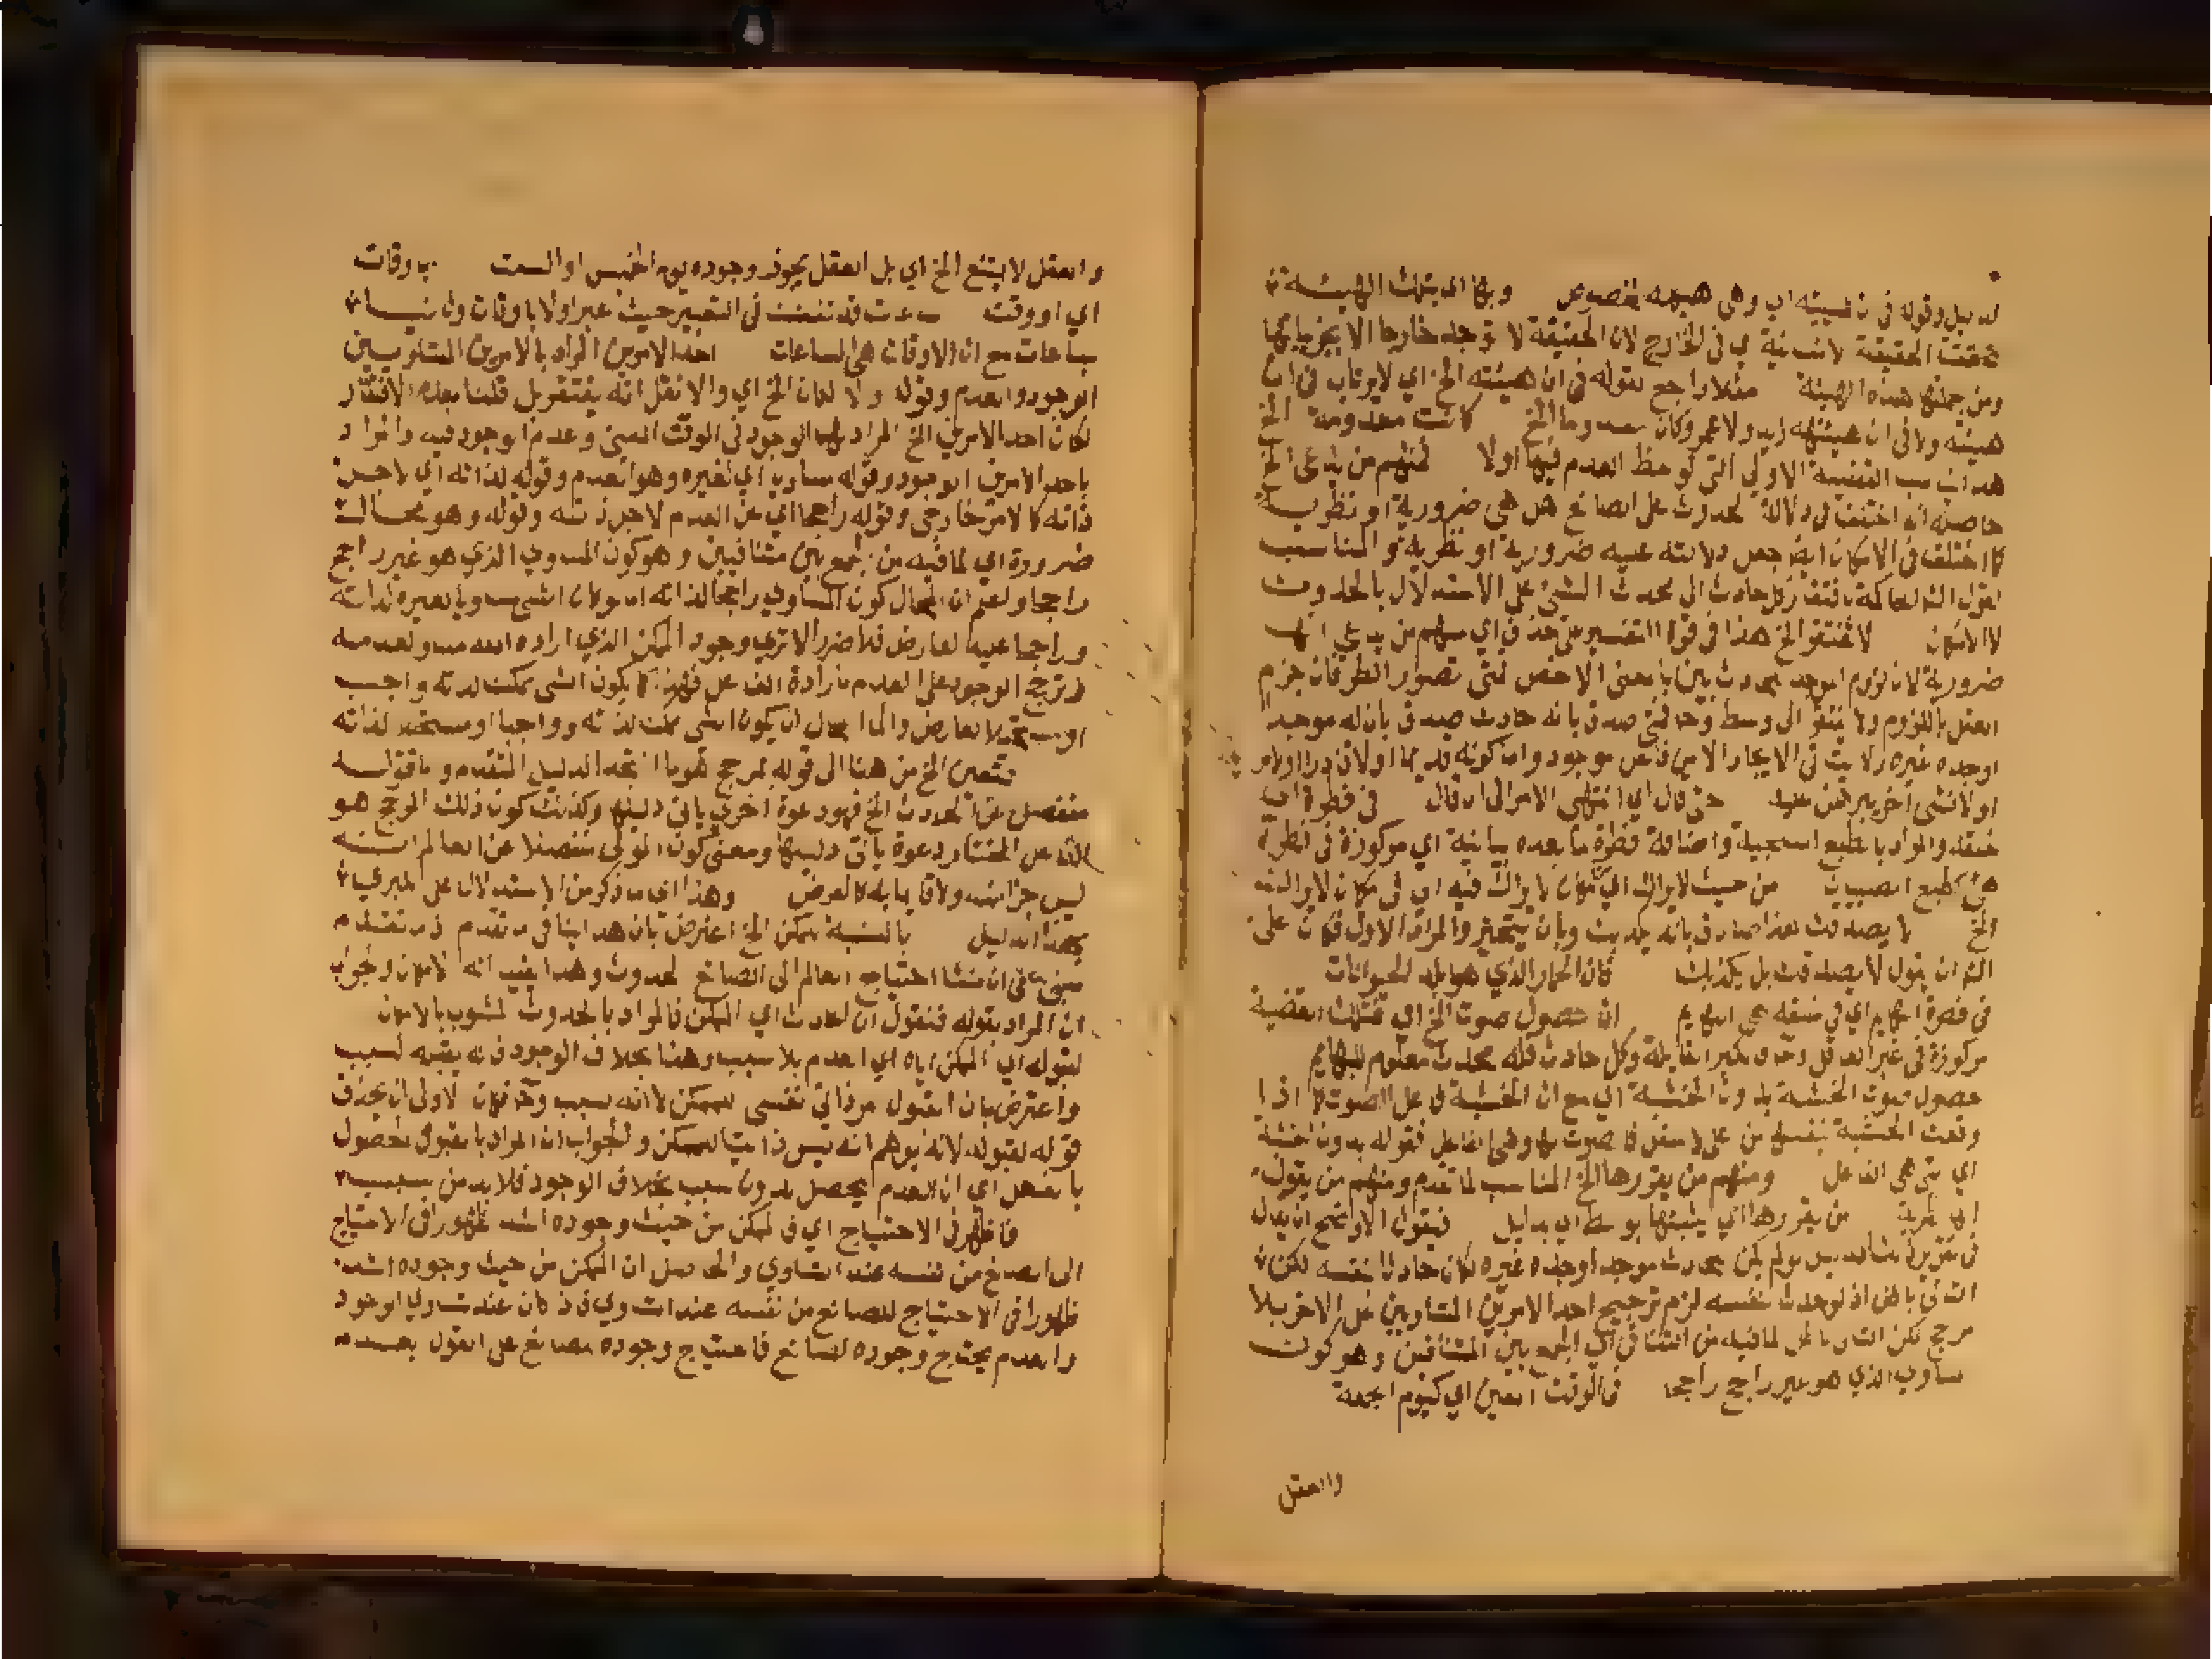 لدليل وقوله في ناحيته اي وهي هيئه مخصوص وبها اي بتلك الهيئة
تحققت الحقيقة لانسانية اي في الخارج لان الحقيقة لا توجد خارجا الا بجزئياتها
ومن جملتها هذه الهيئة مثلا راجع لقوله في ان هيئته الخ اي لا يرتاب في ان
هيئته ولا في ان هيئته زيد ولا عمر وكان معدوما الخ كانت معدومة الخ
هذا يناسب القضية الاولى التي لوحظ العدم فيها اولا فمنهم من يدعى الخ
حاصله انه اختلف في دلالة الحدوث على الصانع هل هي ضرورية او نظرية
كما اختلف في الامكان ايضا جعل دلالته عليه ضرورية او نظرية والمناسب
لقول الحاكمة بافتقار كل حادث الى محدث الشيء على الاستدلال بالحدوث
لا الامكان لا تفتقر الخ هذا في قوة التفسير على حذف اي منهم من يدعي انها
ضرورية لان لزوم الموجد للحادث بين بالمعنى الاخص فمتى تصور الطرفان جزم
العقل باللزوم ولا يفتقر الى وسط وح فمتى صدق بانه حادث صدق بان له موجدا
اوجده غيره ولا يثبت في الايجاد الا من فاعل موجود واما كونه قديما اولا قادرا اولا
او لا فشيء آخر يبرهن عليه حتى قال اي انتهى الامر الى ان قال في فطرة اي
خلقه والمراد بالطبع السجية واضافة فطرة لما بعده بيانية اي مركوزة في فطرة
هي طبع الصبيان من حيث لا يراك اي مكان لا يراك فيه اي في مكان لا يراك فيه
الخ لا يصدقك هذا صادق بانه يكذبك وبان يتحير والمراد الاول فكان على
الشم ان يقول لا يصدقك بل يكذبك فان الحمار الذي هو ابلد الحيوانات
في فطرة البهايم اي في خلقه هي البهايم ان حصول صوت الخ اي فتلك القضية
مركوزة في غير العاقل وح في غير القايلة وكل حادث فله محدث معلوم للبهايم
حصول صوت الخشبة بدون الخشبة اي مع ان الخشبة فاعل الصوت كما اذا
وقعت الخشبة بنفسها من علي لاسفل فالصوت لها وهي الفاعل فقوله بدون الخشبة
اي التي هي الفاعل ومنهم من يقررها الخ المناسب لما تقدم ومنهم من يقول
انها نظرية من يقررها اي يثبتها بوسط اي بدليل فيقول الاوضح ان يقال
في تقرير هذا الدليل لو لم يكن للحادث موجد اوجده غيره لكان حادثا بنفسه لكن
التالي باطل اذ لو حدث بنفسه لزم ترجيح احد الامرين المتساويين على الاخر بلا
مرجح لكن التالي باطل لما فيه من التنافي اي الجمع بين المتنافين وهو كون
المساوي الذي هو غير راجح راجحا فالوقت المعين اي كيوم الجمعة
والعقل
والعقل لا يمنع الخ اي بل العقل يجوز وجوده يوم الخميس او السبت باوقات
اي او وقت ساعات قد تفنن في التعبير حيث عبر اولا باوقات وثانيا
بساعات مع ان الاوقات هي الساعات احد الامرين المراد بالامرين المتساويين
الوجود والعدم وقوله ولا لكان الخ اي والا نقل انه يفتقر بل قلنا بعدم الافتقار
لكان احد الامرين الخ المراد بهما الوجود في الوقت المعين وعدم الوجود فيه والمراد
باحد الامرين الوجود وقوله مساويا اي لغيره وهو العدم وقوله لذاته اي لاجل
ذاته لا لامر خارجي وقوله راجحا اي عن العدم لاجل ذاته وقوله وهو محال
ضرورة اي لما فيه من الجمع بين متنافيين وهو كون المساوي الذي هو غير راجح
راجحا واعلم ان المحال كون المساوي راجحا لذاته اما لو كان الشيء مساويا لغيره لذاته
وراجحا عليه لعارض فلا ضرر الا ترى وجود الممكن الذي اراده الله مساو لعدمه
وترجح الوجود على العدم بارادة الفاعل فهذا كما يكون الشيء ممكن لذاته واجب
او مستحيلا لعارض وانما المحال ان يكون الشيء ممكن لذاته وواجبا او مستحيلا لذاته
فتعين الخ من هنا الى قوله لمرجح هو ما انتجه الدليل المتقدم وما قوله
منفصل عن الحدوث الخ فهو دعوة اخرى ياتي دليلها وكذلك كون ذلك المرجح هو
الفاعل المختار دعوة ياتي دليلها ومعنى كون المولى منفصلا عن العالم انه
ليس جزا منه ولا قايما به كالعرض وهذا اي ما ذكر من الاستدلال على المرجح
بهذا الدليل بالنسبة لممكن الخ اعترض بان هذا ينافي ما تقدم اذ ما تقدم
مبني على ان منشا احتياج العالم الى الصانع الحدوث وهذا يفيد انه الامكان والجواب
ان المراد بقوله فنقول ان الحادث اي الممكن فالمراد بالحدوث المشوب بالامكان
لقوله اي الممكن اياه اي العدم بلا سبب وهذا بخلاف الوجود فانه يقبله لسبب
واعترض بان القبول امر ذاتي نفسي للممكن لا انه بسبب وح فكان الاولى ان يحذف
قوله لقبوله لانه يوهم انه ليس ذاتيا للممكن والجواب ان المراد بالقبول الحصول
بالفعل اي ان العدم يحصل بدون سبب بخلاف الوجود فلا بد من سبب
فاظهر في الاحتياج اي في الممكن من حيث وجوده اشد ظهورا في الاحتياج
الى الصانع من نفسه عند التساوي والحاصل ان الممكن من حيث وجوده اشد
ظهورا في الاحتياج للصانع من نفسه عند التساوي فاذا كان عند تساوي الوجود
والعدم يحتاج وجوده لصانع فاحتياج وجوده لصانع على القول بعدم